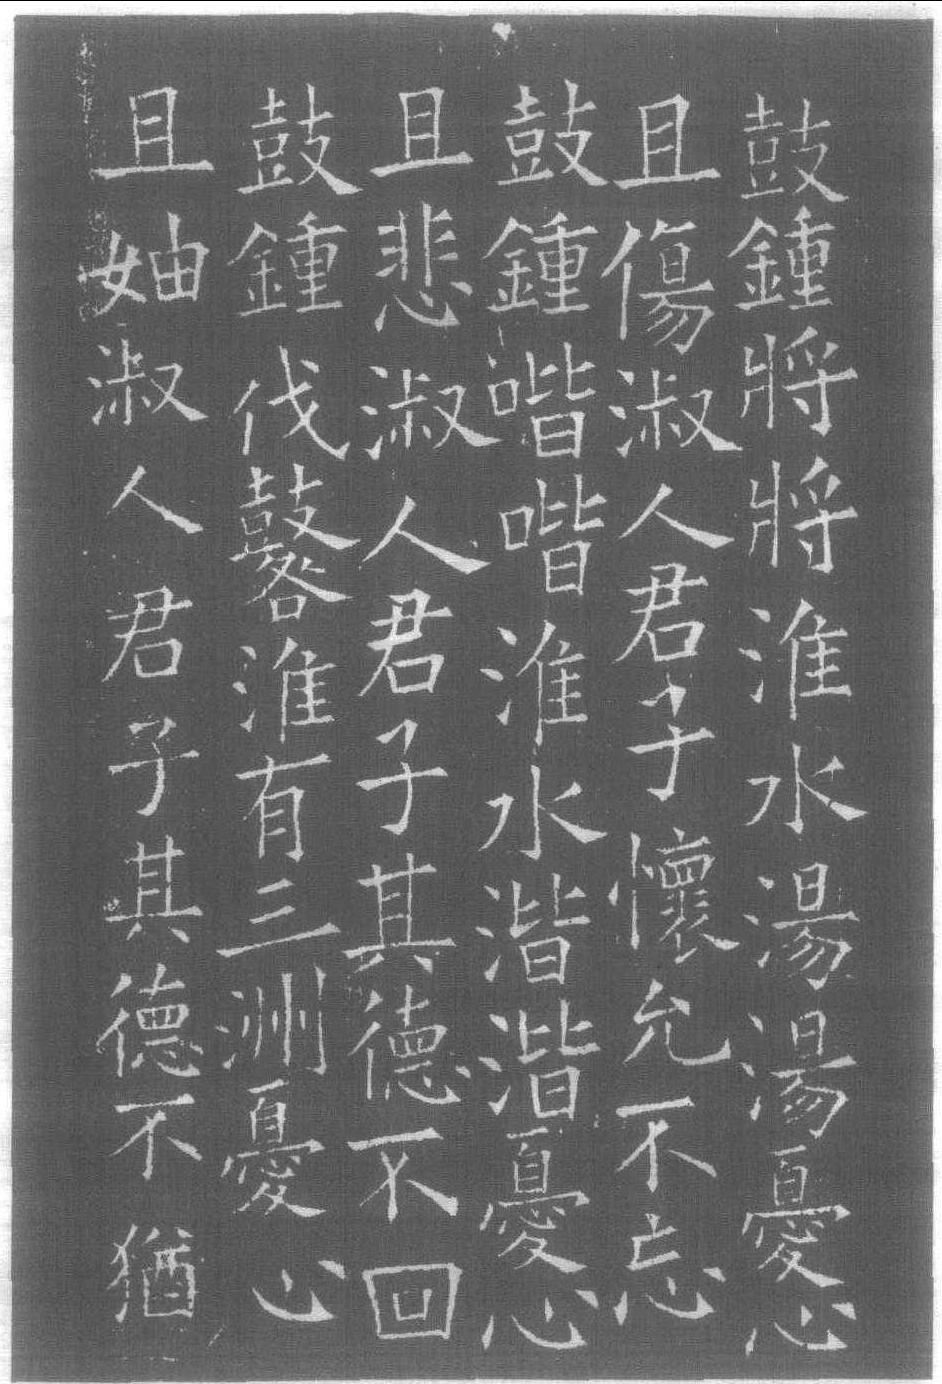 鼓鍾將將淮水湯湯憂心
且傷淑人君子懷允不忘
鼓鍾喈喈淮水湝湝憂心
且悲淑人君子其德不回
鼓鍾伐鼛淮有三洲憂心
且妯淑人君子其德不猶